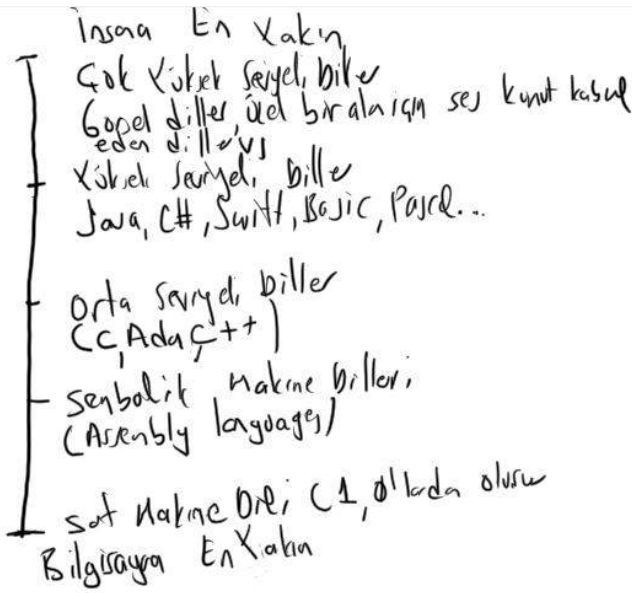 İnsana En Yakın
Çok Yüksek Seviyeli Diller
Görsel diller, özel bir alan için ses komut kabul
eden diller vs
Yüksek Seviyeli Diller
Java, C#, Swift, Basic, Pascal...
Orta Seviyeli Diller
(C, Ada, C++)
Sembolik Makine Dilleri
(Assembly languages)
Saf Makine Dili (1, 0'lardan oluşur
Bilgisayara En Yakın